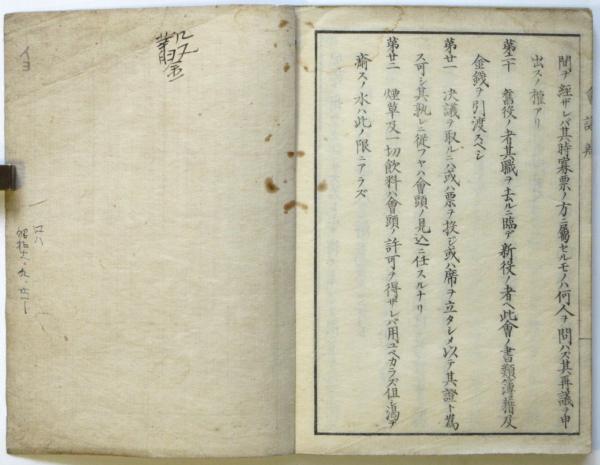 間ヲ經ザレバ其時寡票ノ方ニ屬セルモノハ何人ヲ問ハズ其再議ヲ申
出スノ權アリ
第二十 舊役ノ者其職ヲ去ルニ臨デ新役ノ者ヘ此會ノ書類簿籍及
金錢ヲ引渡スベシ
第廿一 决議ヲ取ルニハ或ハ票ヲ投ジ或ハ席ヲ立タシメ以テ其證ト爲
ス可シ其孰レニ從フヤハ會頭ノ見込ニ任スルナリ
第廿二 煙草及一切飲料ハ會頭ノ許可ヲ得ザレバ用ユベカラズ但シ渴ヲ
療スノ水ハ此ノ限ニアラズ